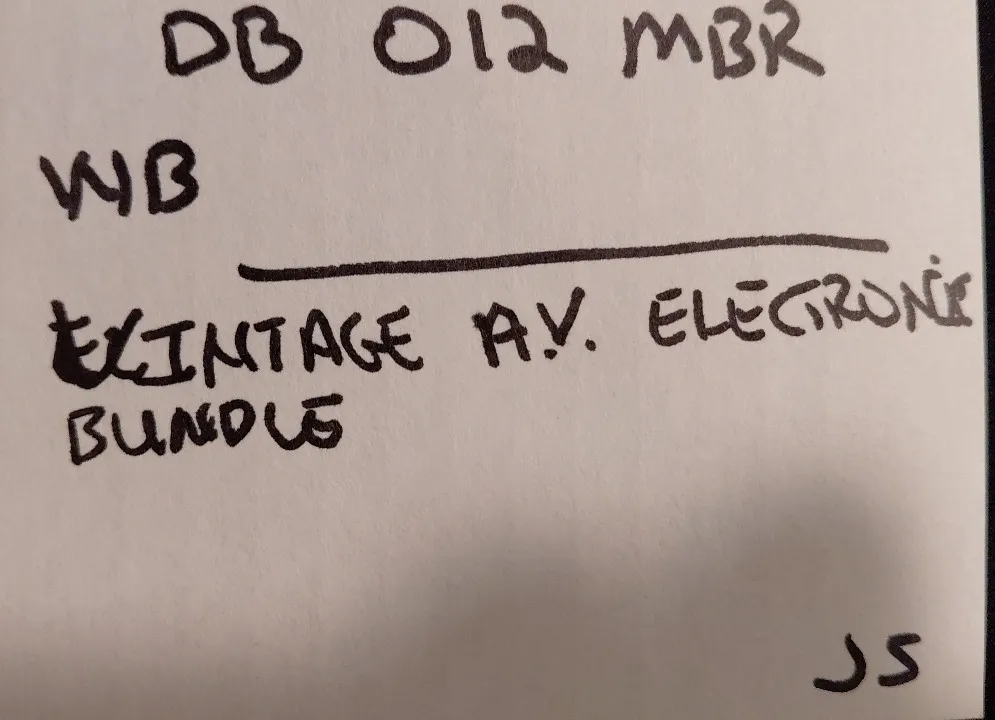 DB 012 MBR
WB
VINTAGE A.V. ELECTRONIC
BUNDLE
JS